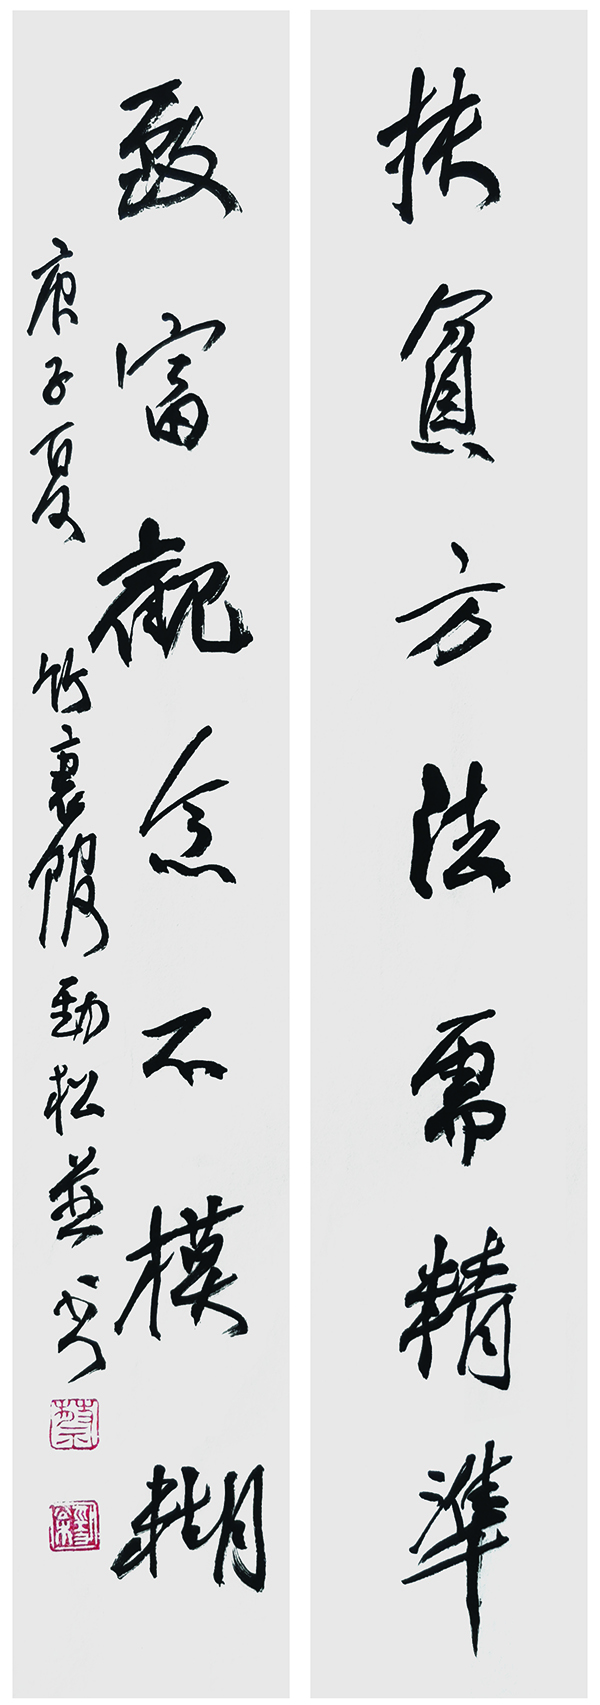 扶貧方法需精準
致富觀念不模糊
庚子夏竹裏館勁松並書